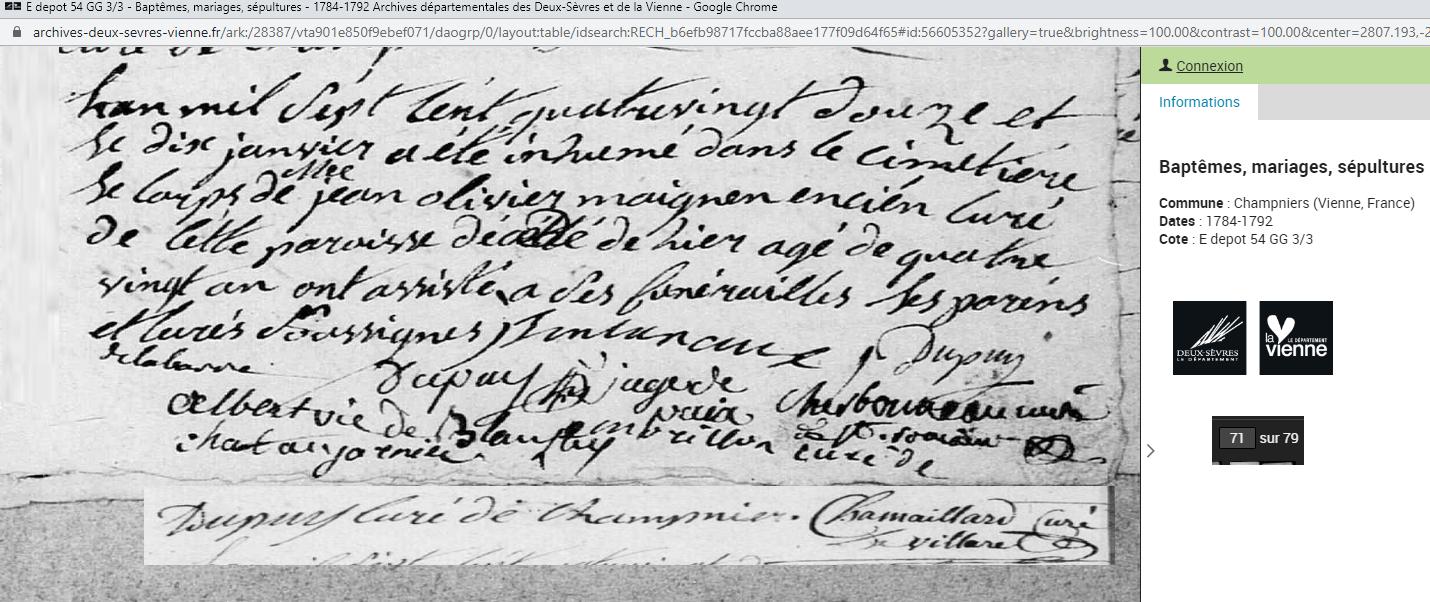 E depot 54 GG 3/3 - Baptêmes, mariages, sépultures - 1784-1792 Archives départementales des Deux-Sèvres et de la Vienne - Google Chrome
archives-deux-sevres-vienne.fr/ark:/28387/vta901e850f9ebef071/daogrp/0/layout:table/idsearch:RECH_b6efb98717fccba88aee177f09d64f65#id:56605352?gallery=true&brightness=100.00&contrast=100.00&center=2807.193,-2
lan mil sept cent quatrevingt douze et
le dix janvier a été inhumé dans le cimetiere
Mre
le corps de jean olivier maignen encien curé
de cette paroisse décédé de hier agé de quatre
vingt an ont assisté a ses funérailles ses parens
et curés soussignes
Dupuy
delabarre
Dupuy juge de
paix
Albert vic de Blanzay
curé de
Dupuy curé de Champnier. Chamaillard curé
de villaret
Connexion
Informations
Baptêmes, mariages, sépultures
Commune : Champniers (Vienne, France)
Dates : 1784-1792
Cote : E depot 54 GG 3/3
DEUX-SÈVRES
LE DÉPARTEMENT
la vienne
LE DÉPARTEMENT
71 sur 79